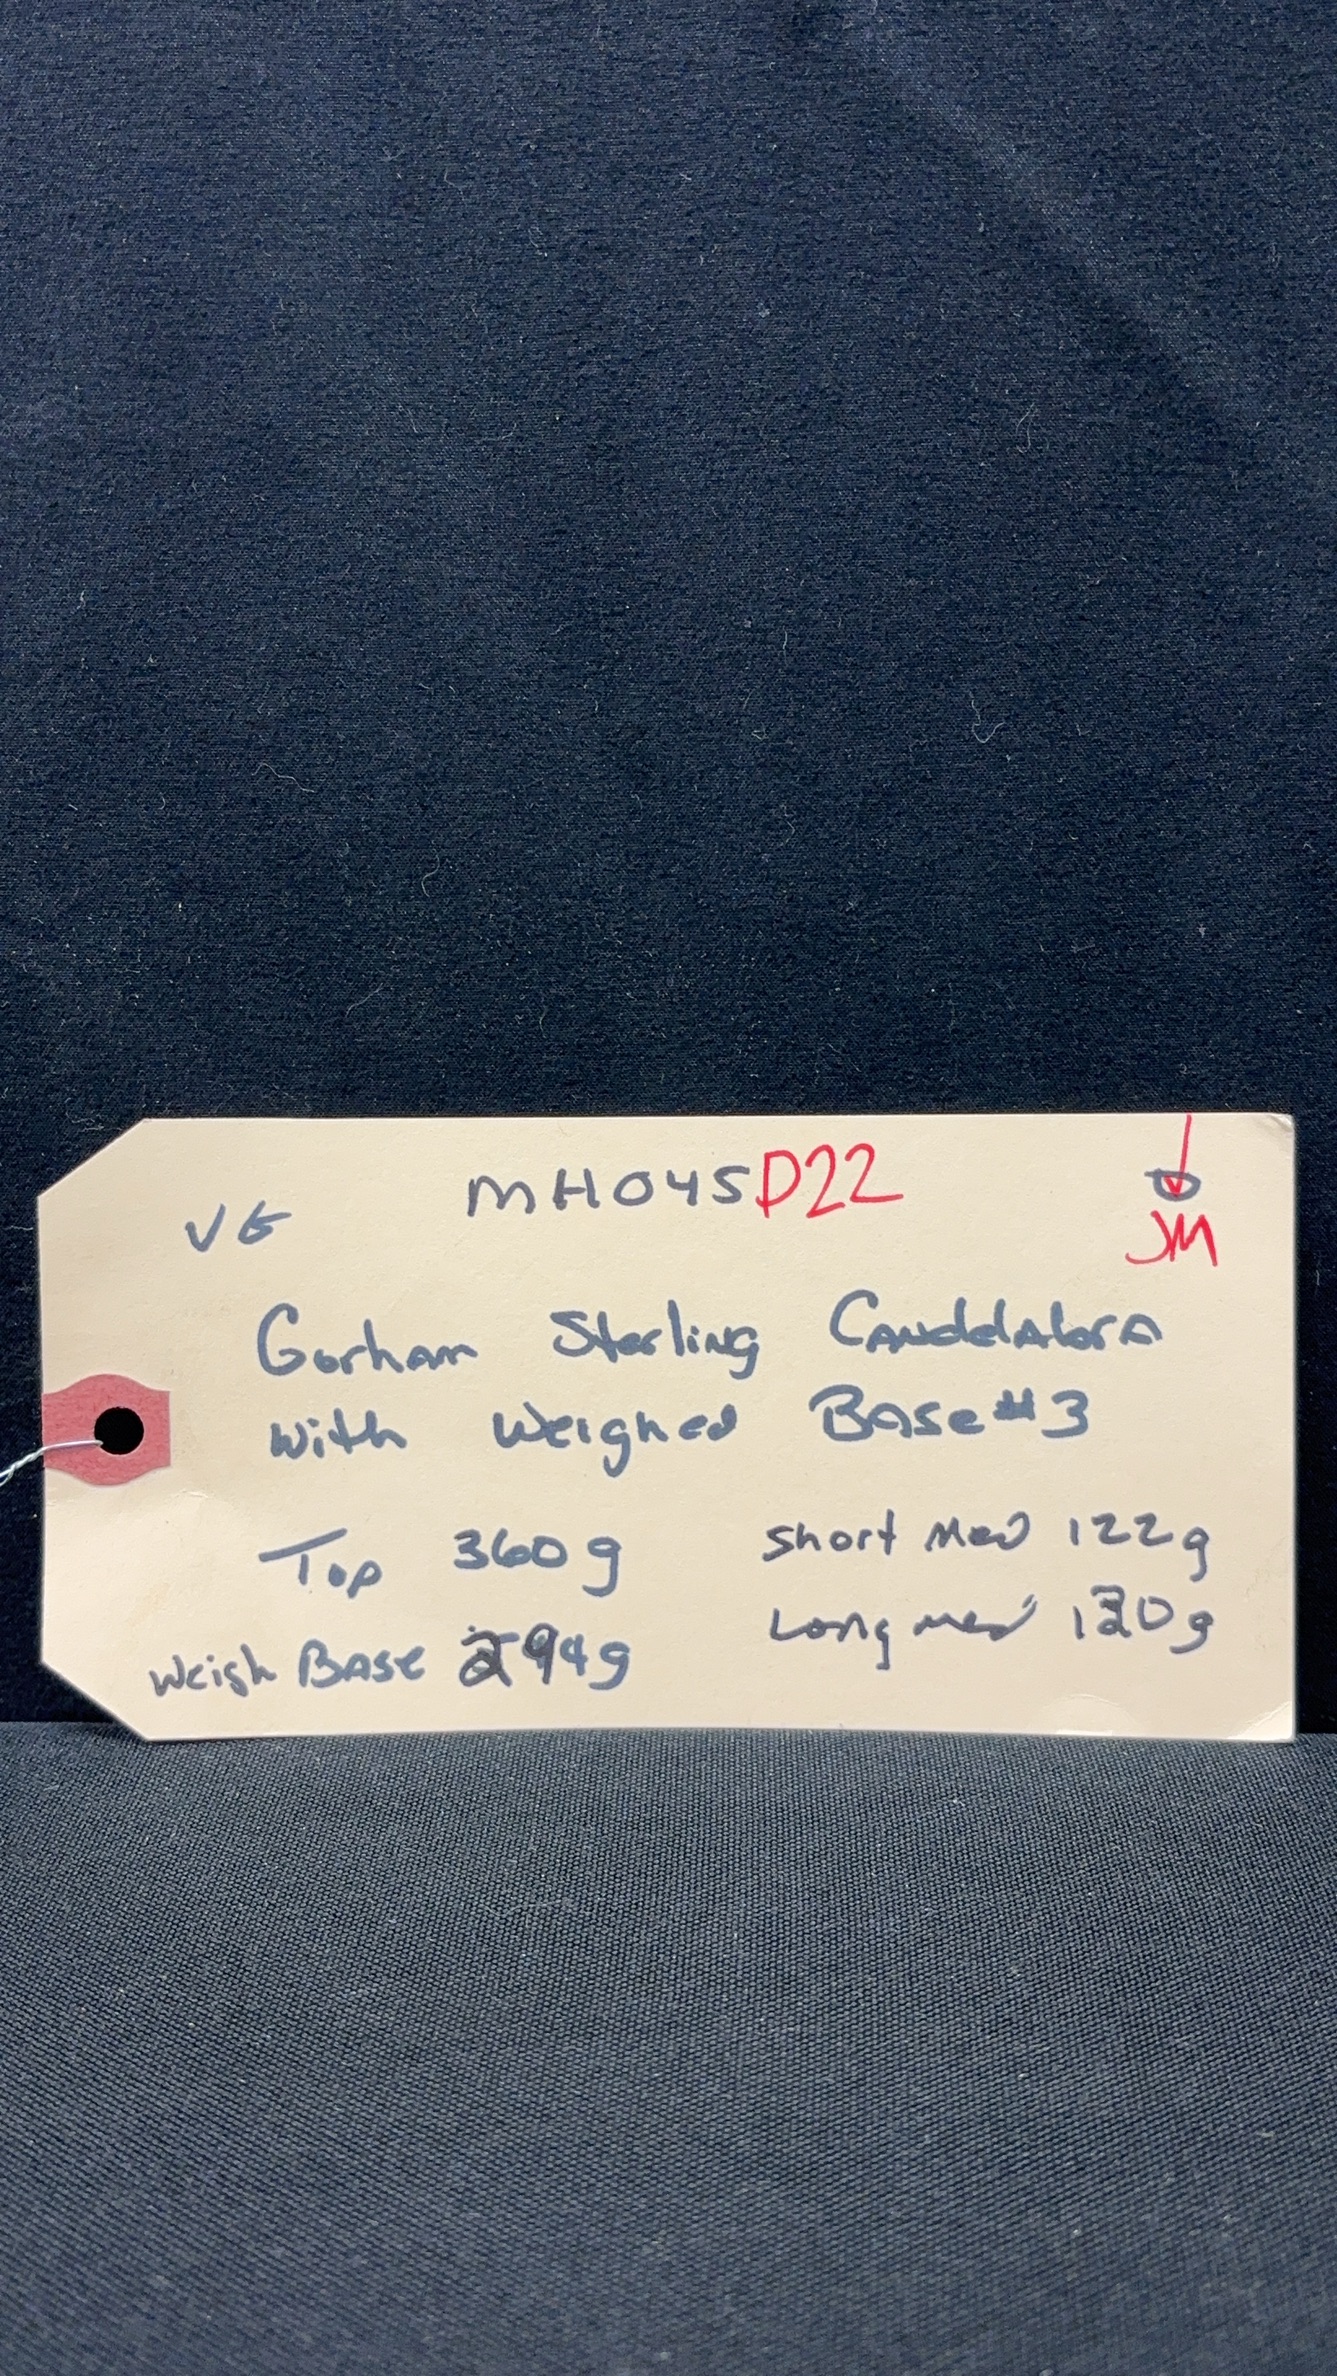 MH045D22
VG
JM
Gorham Sterling Canddelabra
with weighed Base #3
Top 360g
short Med 122g
Weigh Base 294g
Long med 120g